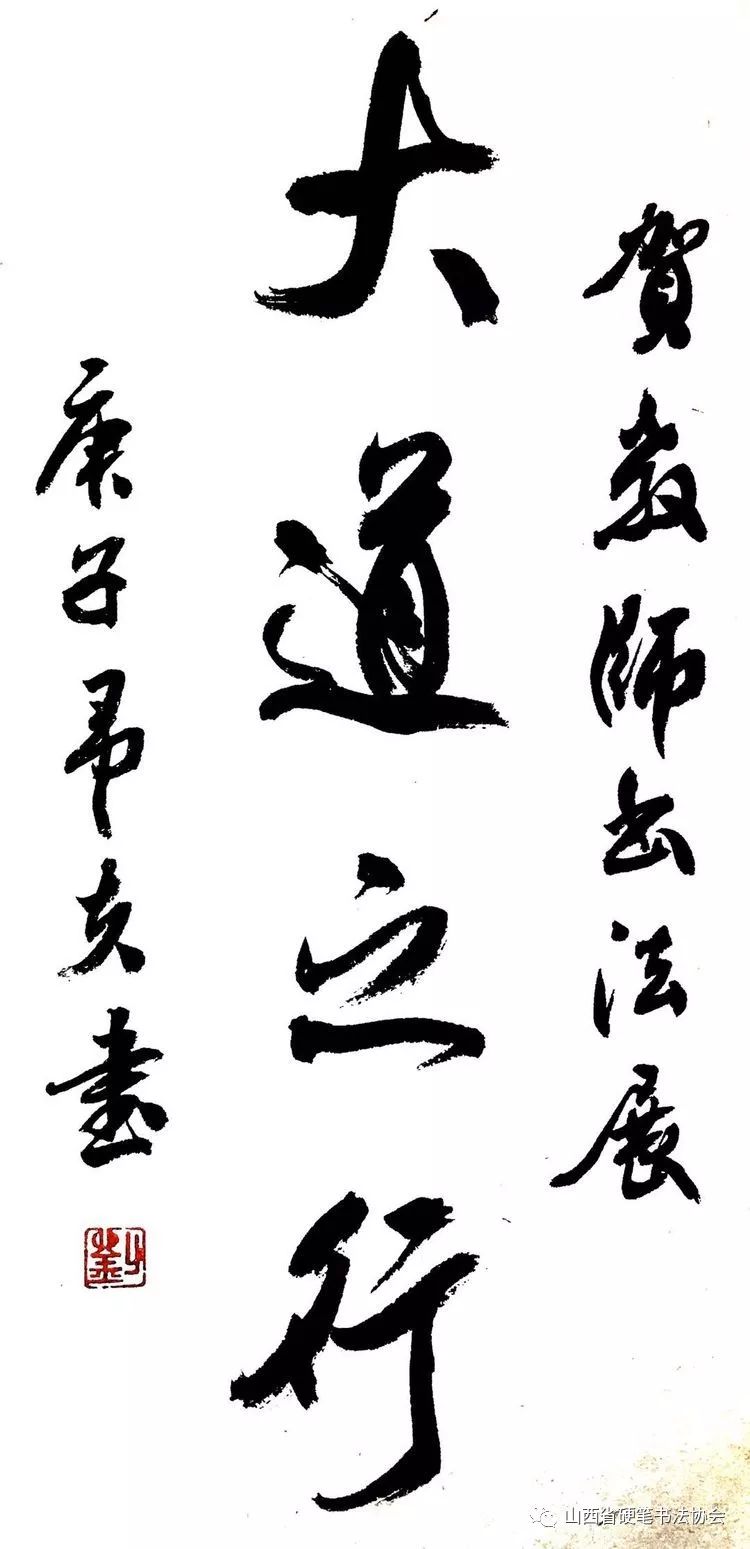 賀教師书法展
大道之行
庚子昂友書
劉
山西省硬笔书法协会